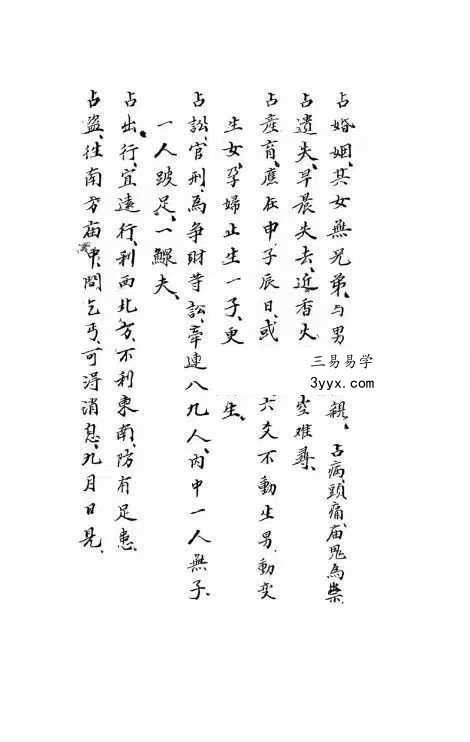 占婚姻、其女無兄弟、与男親、占病、頭痛、庙鬼為祟、
占遺失、早晨失去、近香火空难尋、
占產育、應在申子辰日、或六爻不動生男、動变
生女、孕婦止生一子、更生、
占訟、官刑、為爭財等訟、牽連八九人、內中一人無子、
一人跛足、一鰥夫、
占出行、宜遠行、利西北方、不利東南、防有足患、
占盗、往南方庙中、問乞丐、可淂消息、九月日見、
三易易学
3yyx.com